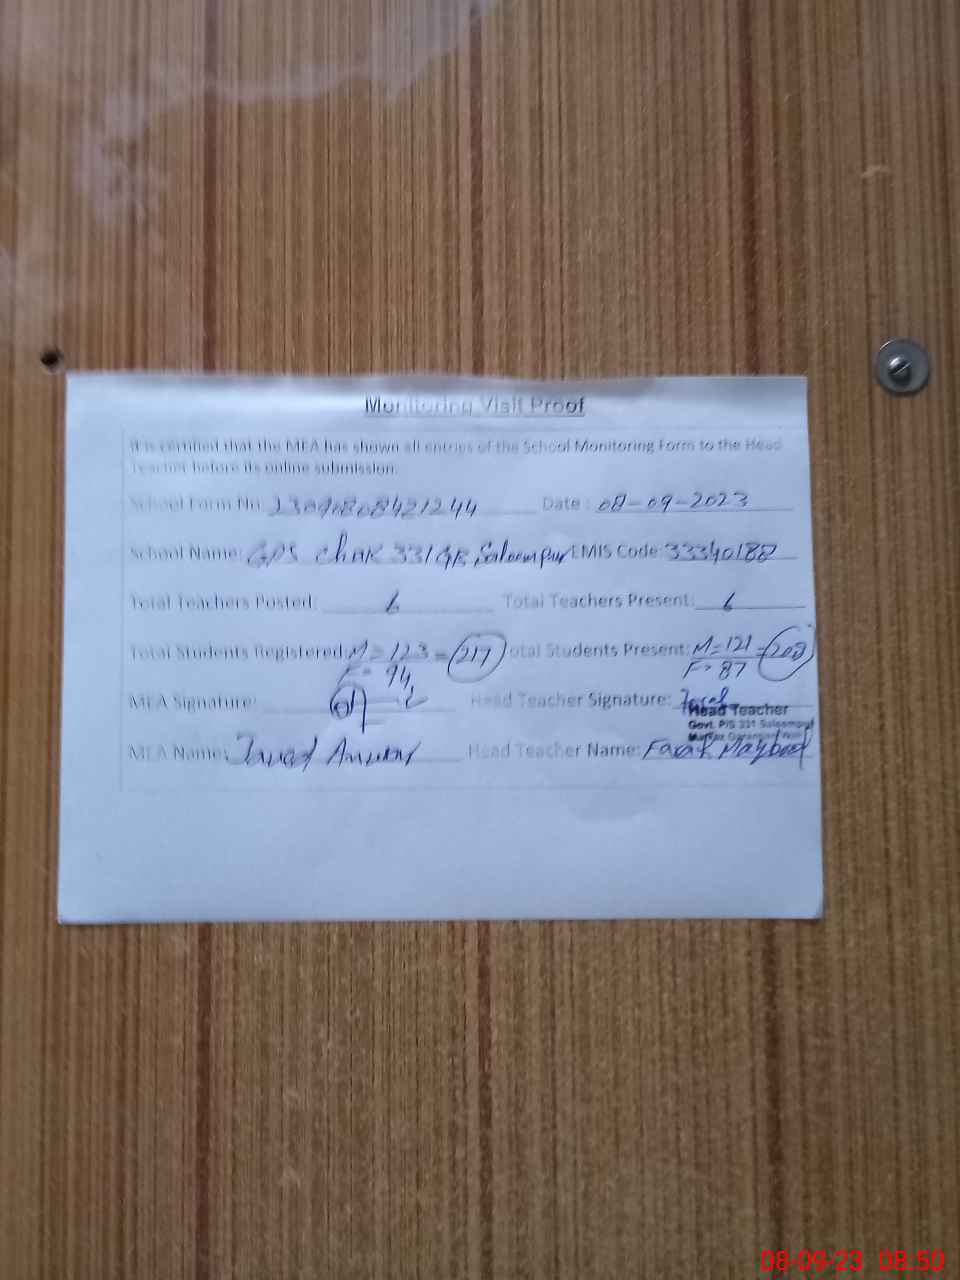 Monitoring Visit Proof
It is certified that the MEA has shown all entries of the School Monitoring Form to the Head
Teacher before its online submission.
School Form No: Date : 08-09-2023
School Name: GPS Chak 331 GB Saleempur EMIS Code: 33340188
Total Teachers Posted: 6 Total Teachers Present: 6
Total Students Registered: M = 123 = 217 Total Students Present: M = 121 = 208
F = 94 F = 87
MEA Signature: Head Teacher Signature:
Head Teacher
Govt. P/S 331 Saleempur
MEA Name: Javed Anwar Head Teacher Name:
08-09-23 08:50